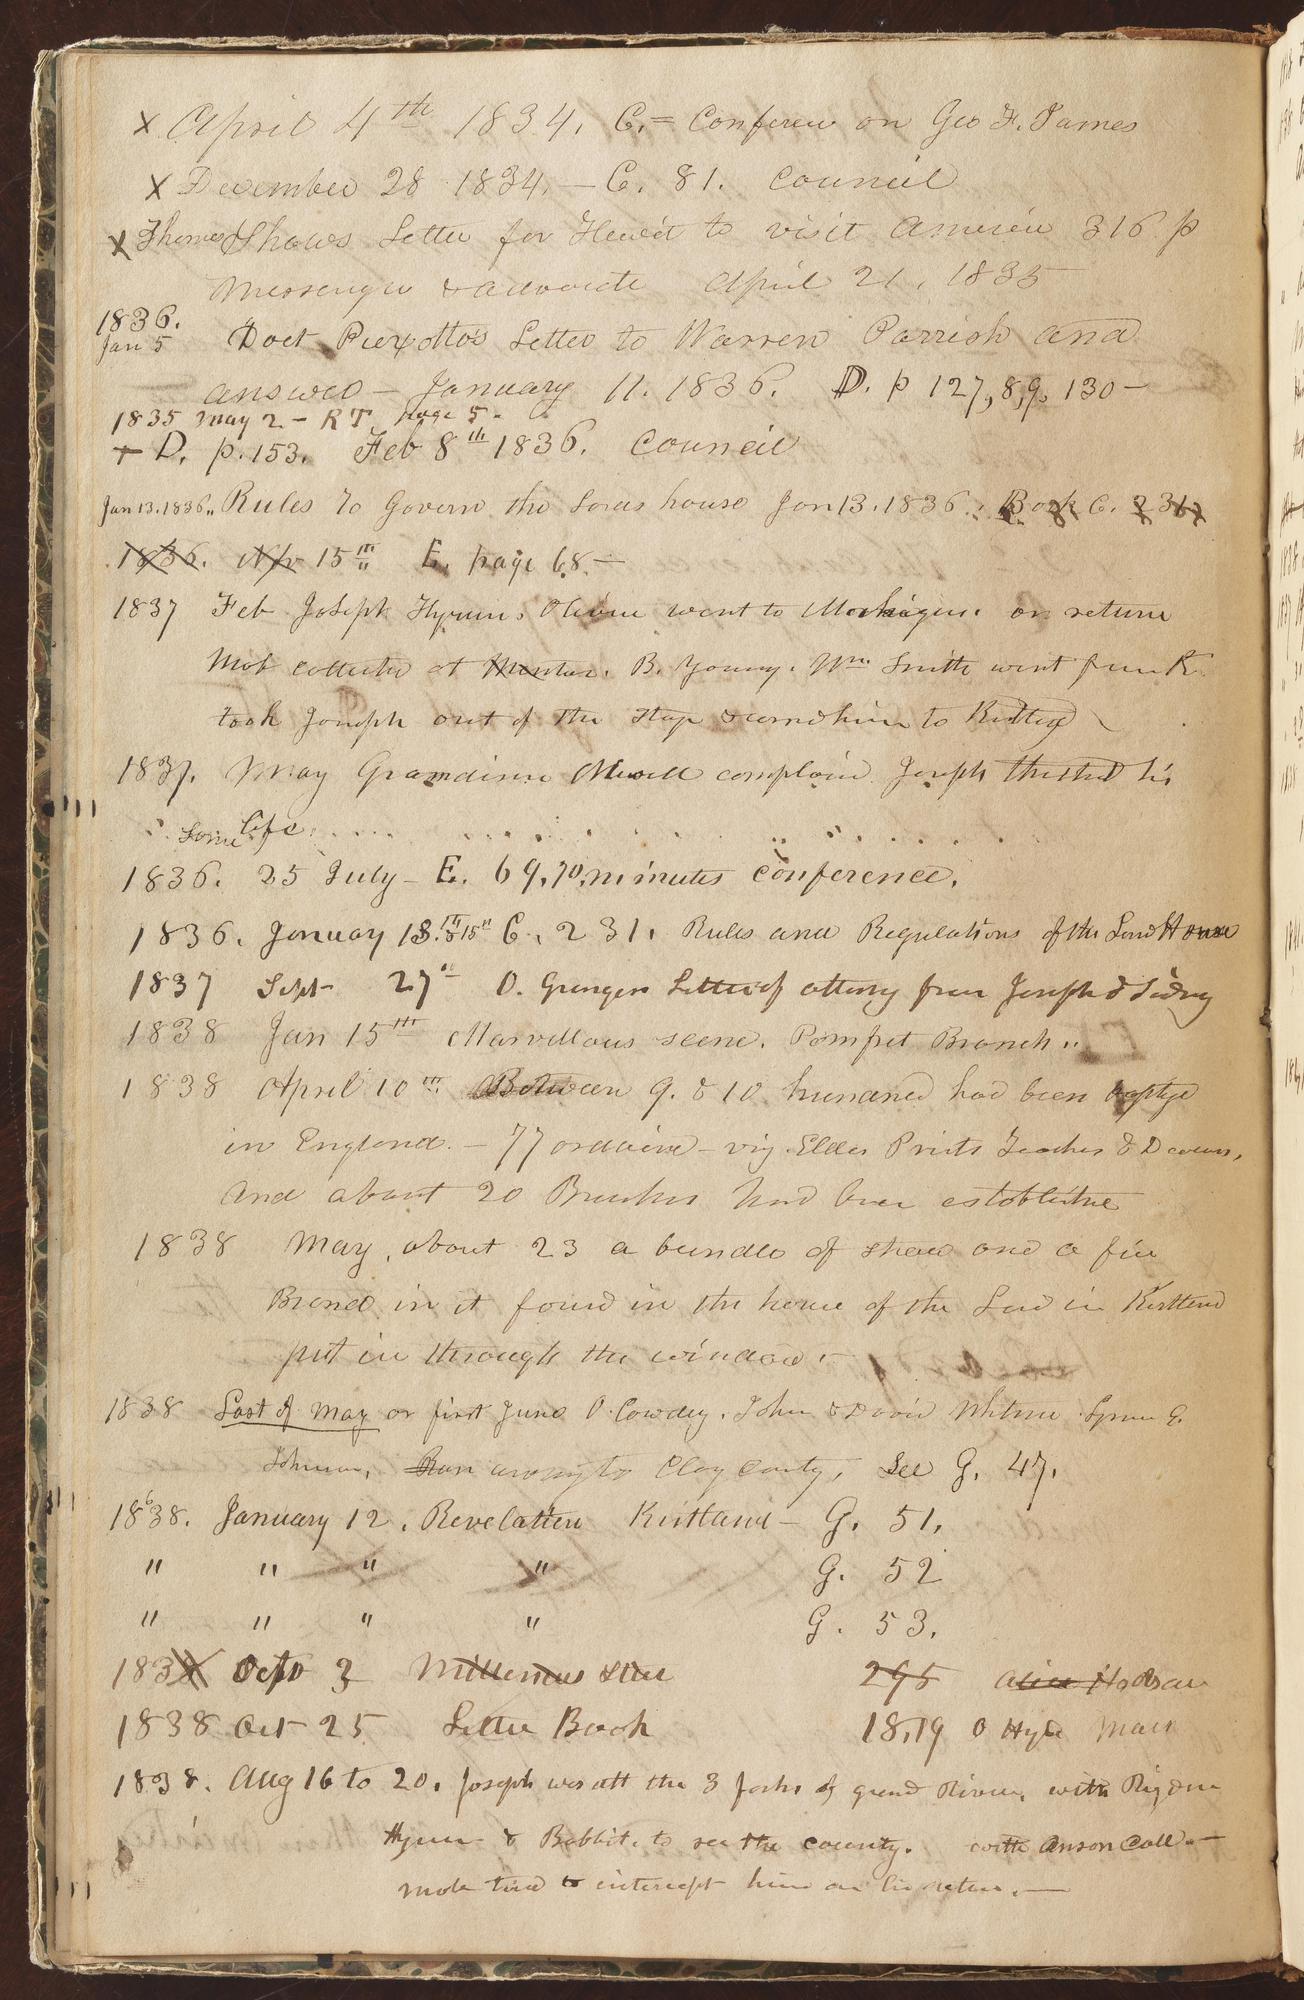 x April 4th 1834, C. = Conferen on Geo F. James
x December 28 1834, — C. 81. Council
x Thomas Shaws Letter for Hewit to visit America 316 p
Messenger & advocate April 21, 1835
1836.
Jan 5 Doct Piexottos Letter to Warren Parrish and
answer — January 11. 1836. D. p 127, 8, 9, 130 —
1835 May 2 — R T page 5.
+ D. p. 153. Feb 8th 1836. Council
Jan 13. 1836 „ Rules to Govern the Lords house Jan 13. 1836. Book C. 231
1836. Apr 15th E. page 68. —
1837 Feb Joseph Hyrum, Oliver went to Michigan. on return
Mob collected at Mentor. B. Young. Wm Smith went from K.
took Joseph out of the stage & him to Kirtland
1837. May Grandison Newell complain Joseph thretned his
Some life
1836. 25 July — E. 69, 70, minutes conference.
1836. January 13th & 15th C. 231. Rules and Regulations of the Lord House
1837 Sept 27th O. Grangers Letter of attorny from Joseph & Sidney
1838 Jan 15th Marvellous scene. Pomfret Branch „
1838 April 10th Between 9. & 10 hundred had been baptize
in England. — 77 ordained — viz. Elders Priests Teachers & Deacons,
And about 20 Branches had been established
1838 May, about 23 a bundle of straw and a fire
Brand in it found in the house of the Lord in Kirtland
put in through the window. —
1838 Last of May or first June O. Cowdery. John & David Whitmer Lyman E.
Johnson, Ran away to Clay County, See G. 47.
1838. 6 January 12. Revelation Kirtland — G. 51.
" " " " G. 52
" " " " G. 53.
1838 Octo 3 Millennial Star 295 Alice Hodson
1838 Oct 25 Letter Book 18, 19 O Hyde Mass
1838. Aug 16 to 20. Joseph was att the 3 forks of grand River, with Rigdon
Hyrum & Babbit. to see the county. with Anson Call —
Mob tried to intercept him on his return. —